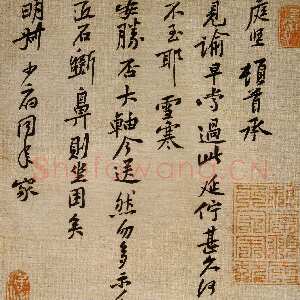 庭堅頓首承
見諭早常過此延佇甚久何
不至耶 雪寒
安勝否大軸今送然勿多示人
匠石斲鼻則坐困矣
明叔少府同年家
Shufawang.CN